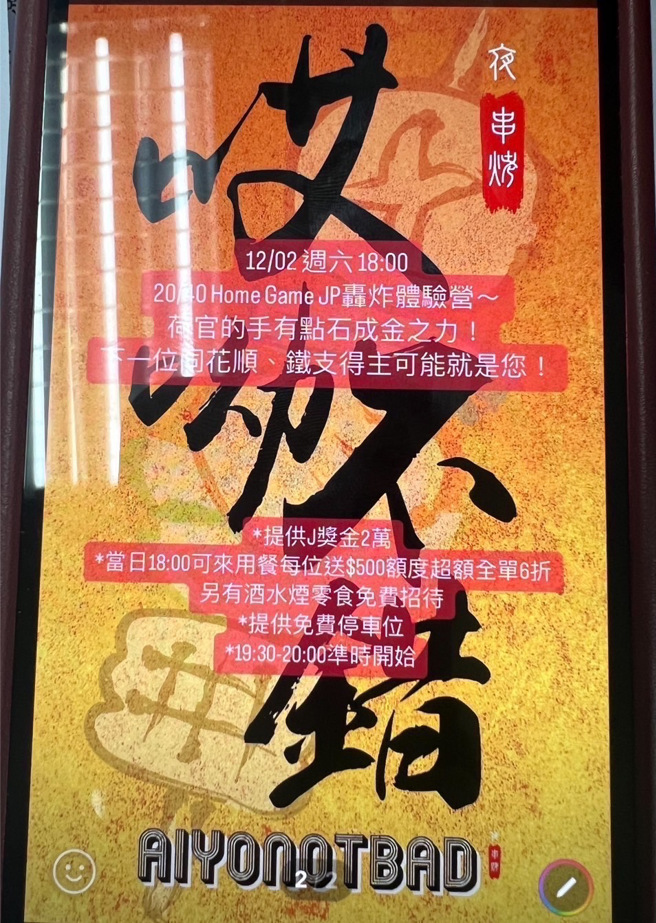 夜
串燒
哎呦不錯
12/02 週六 18:00
20/40 Home Game JP轟炸體驗營～
荷官的手有點石成金之力！
下一位同花順、鐵支得主可能就是您！
*提供J獎金2萬
*當日18:00可來用餐每位送$500額度超額全單6折
另有酒水煙零食免費招待
*提供免費停車位
*19:30-20:00準時開始
AIYONOTBAD